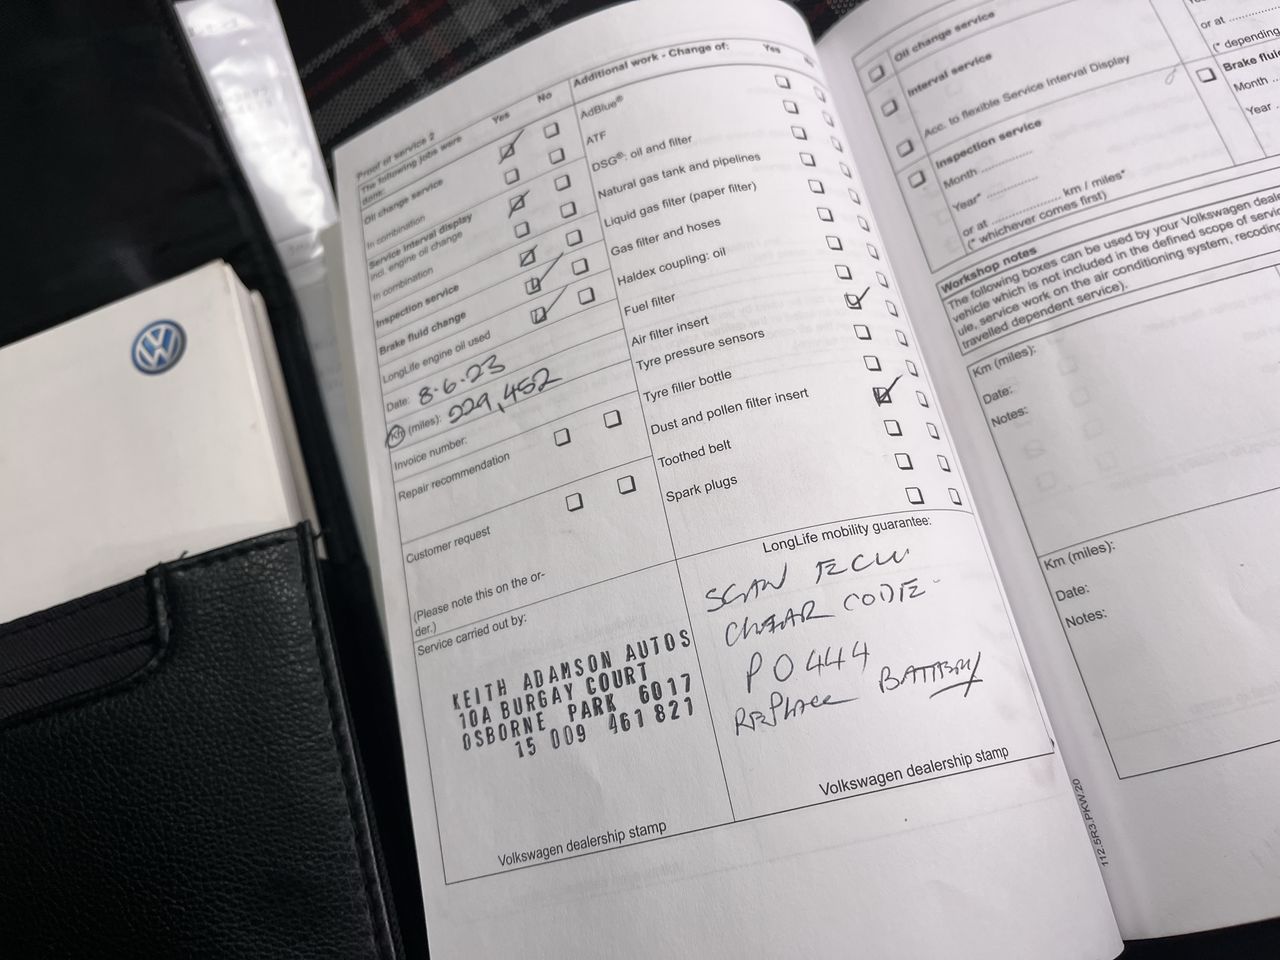 Proof of service 2
The following jobs were
done:
Yes
No
Oil change service
In combination
Service Interval display
incl. engine oil change
In combination
Inspection service
Brake fluid change
LongLife engine oil used
Date: 8.6.23
Km (miles): 229,452
Invoice number:
Repair recommendation
Customer request
(Please note this on the or-
der.)
Service carried out by:
KEITH ADAMSON AUTOS
10A BURGAY COURT
OSBORNE PARK 6017
15 009 461 821
Volkswagen dealership stamp
Additional work - Change of:
Yes
No
AdBlue®
ATF
DSG®: oil and filter
Natural gas tank and pipelines
Liquid gas filter (paper filter)
Gas filter and hoses
Haldex coupling: oil
Fuel filter
Air filter insert
Tyre pressure sensors
Tyre filler bottle
Dust and pollen filter insert
Toothed belt
Spark plugs
LongLife mobility guarantee:
SCAN ECU
CLEAR CODE
P0444
REPLACE BATTERY
Volkswagen dealership stamp
112.5R3.PKW.20
Oil change service
Interval service
Acc. to flexible Service Interval Display
Inspection service
Month ..............
Year* ..............
or at .................... km / miles*
(* whichever comes first)
or at
(* depending
Brake fluid
Month
Year
Workshop notes
The following boxes can be used by your Volkswagen
vehicle which is not included in the defined scope of
ule, service work on the air conditioning system, recoding
travelled dependent service).
Km (miles):
Date:
Notes:
Km (miles):
Date:
Notes: